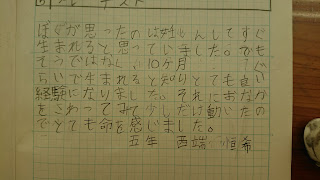 ぼくが思ったのは妊しんしてすぐ
生まれると思っていました。でも
そうではなく、10ヶ月
らいで生まれると知りとても良い
経験になりました。それにおなか
をさわってみて少しだけ動いたの
でとても命を感じました。
五年 西端 恒希